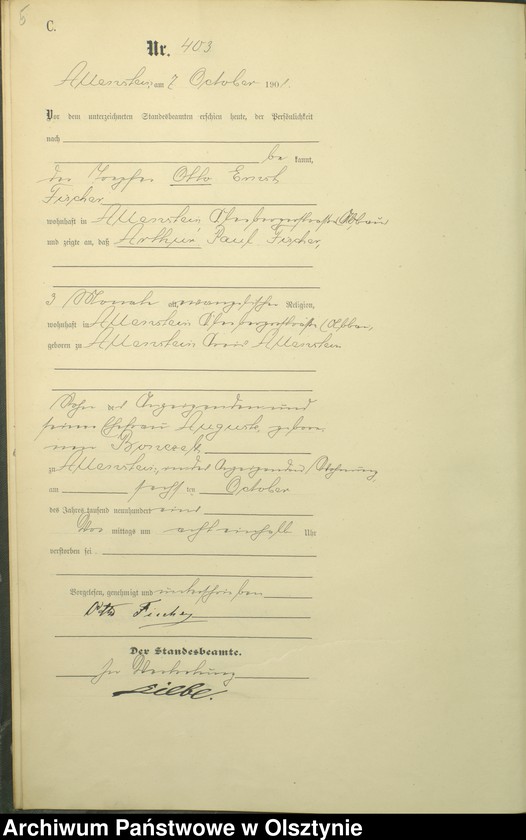 5
C.
Nr. 403
Allenstein, am 7 October 1901.
Vor dem unterzeichneten Standesbeamten erschien heute, der Persönlichkeit
nach
be kannt,
der Toepfer Otto Ernst
Fischer
wohnhaft in Allenstein
und zeigte an, daß Arthur Paul Fischer,
3 Monate alt, evangelischer Religion,
wohnhaft in Allenstein
geboren zu Allenstein Kreis Allenstein
Sohn des Anzeigenden und
seiner Ehefrau Auguste gebore
nen
zu Allenstein, in des Anzeigenden Wohnung
am sechs ten October
des Jahres tausend neunhundert eins
Vor mittags um acht einhalb Uhr
verstorben sei.
Vorgelesen, genehmigt und unterschrieben
Otto Fischer
Der Standesbeamte.
In Vertretung
Archiwum Państwowe w Olsztynie